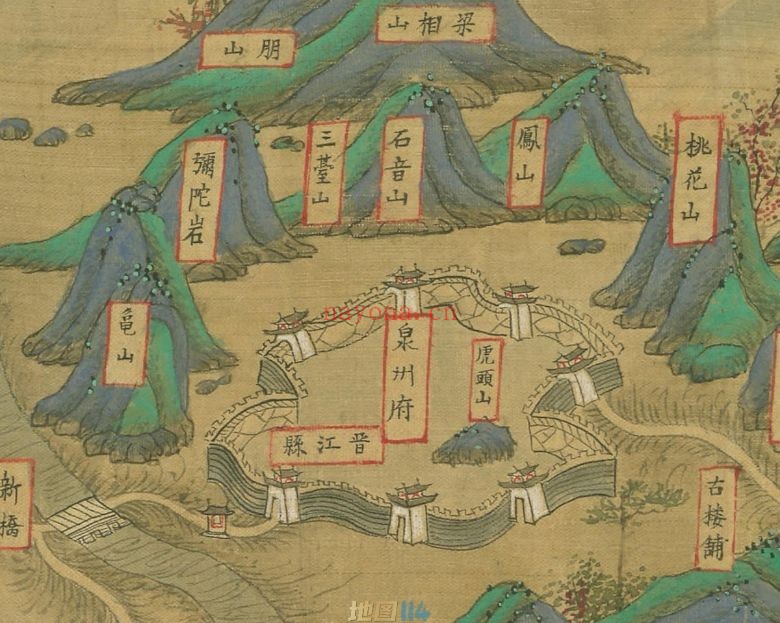 梁相山
朋山
彌陀岩
三臺山
石音山
鳳山
桃花山
龟山
泉州府
虎頭山
晉江縣
新橋
古楼鋪
nayona.cn
地图114